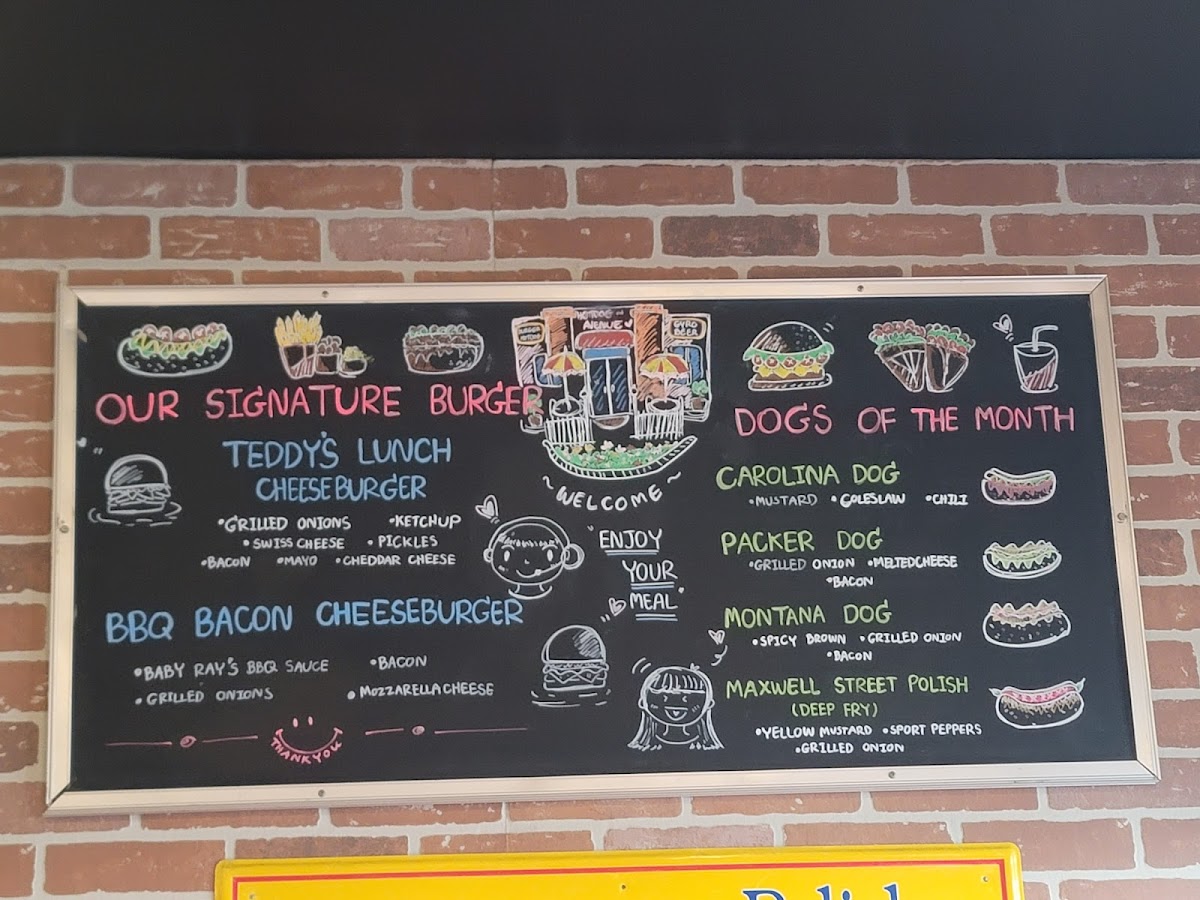 OUR SIGNATURE BURGER
TEDDY'S LUNCH
CHEESEBURGER
•GRILLED ONIONS •KETCHUP
•SWISS CHEESE •PICKLES
•BACON •MAYO •CHEDDAR CHEESE
BBQ BACON CHEESEBURGER
•BABY RAY'S BBQ SAUCE •BACON
•GRILLED ONIONS •MOZZARELLA CHEESE
THANK YOU
HOTDOG
AVENUE
BURGER
GYRO
BEER
~WELCOME~
"ENJOY
YOUR
MEAL"
DOGS OF THE MONTH
CAROLINA DOG
•MUSTARD •COLESLAW •CHILI
PACKER DOG
•GRILLED ONION •MELTED CHEESE
•BACON
MONTANA DOG
•SPICY BROWN •GRILLED ONION
•BACON
MAXWELL STREET POLISH
(DEEP FRY)
•YELLOW MUSTARD •SPORT PEPPERS
•GRILLED ONION
Polish